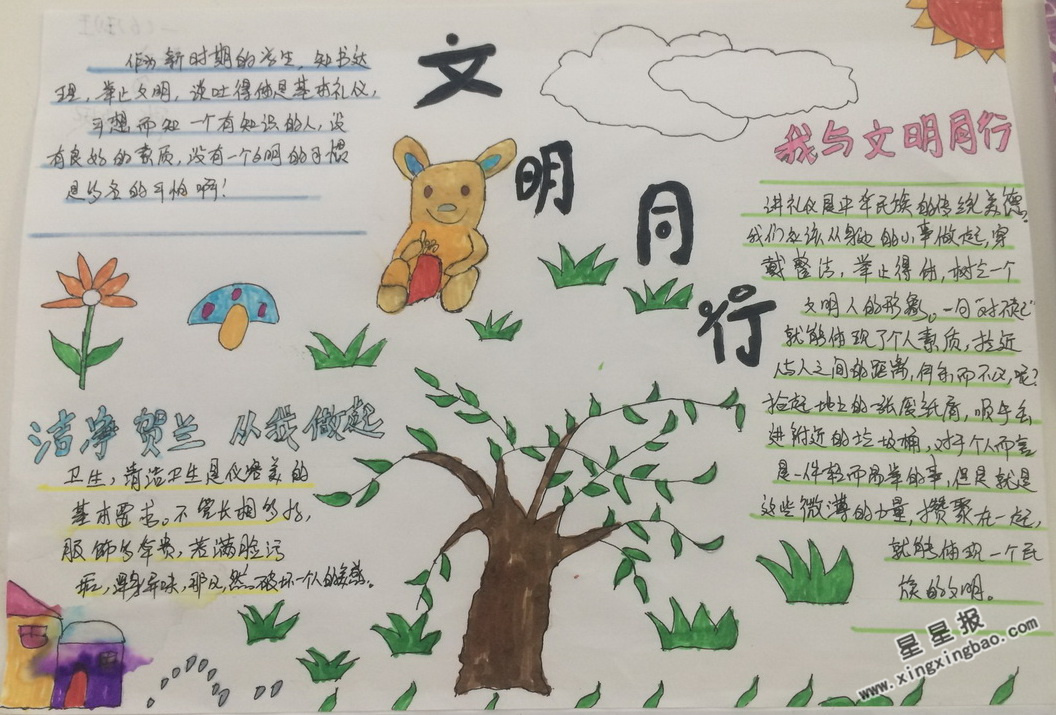 作为新时期的学生，知书达
理，举止文明，谈吐得体是基本礼仪，
可想而知一个有知识的人，没
有良好的素质，没有一个文明的习惯
是多么的可怕啊！
文
明
同
行
我与文明同行
讲礼仪是中华民族的传统美德。
我们应该从身边的小事做起，穿
戴整洁，举止得体，树立一个
文明人的形象。一句"对不起"
就能体现了个人素质，拉近
人与人之间的距离，何乐而不为呢？
捡起地上的一张废纸屑，顺手丢
进附近的垃圾桶，对于个人而言
是一件轻而易举的事，但是就是
这些微薄的力量，攒聚在一起，
就能体现一个民
族的文明。
洁净贺兰 从我做起
卫生，清洁卫生是仪容美的
基本要求。不管长相多好，
服饰多华贵，若满脸污
垢，浑身异味，那必然破坏一个人的美感。
星星报
www.xingxingbao.com